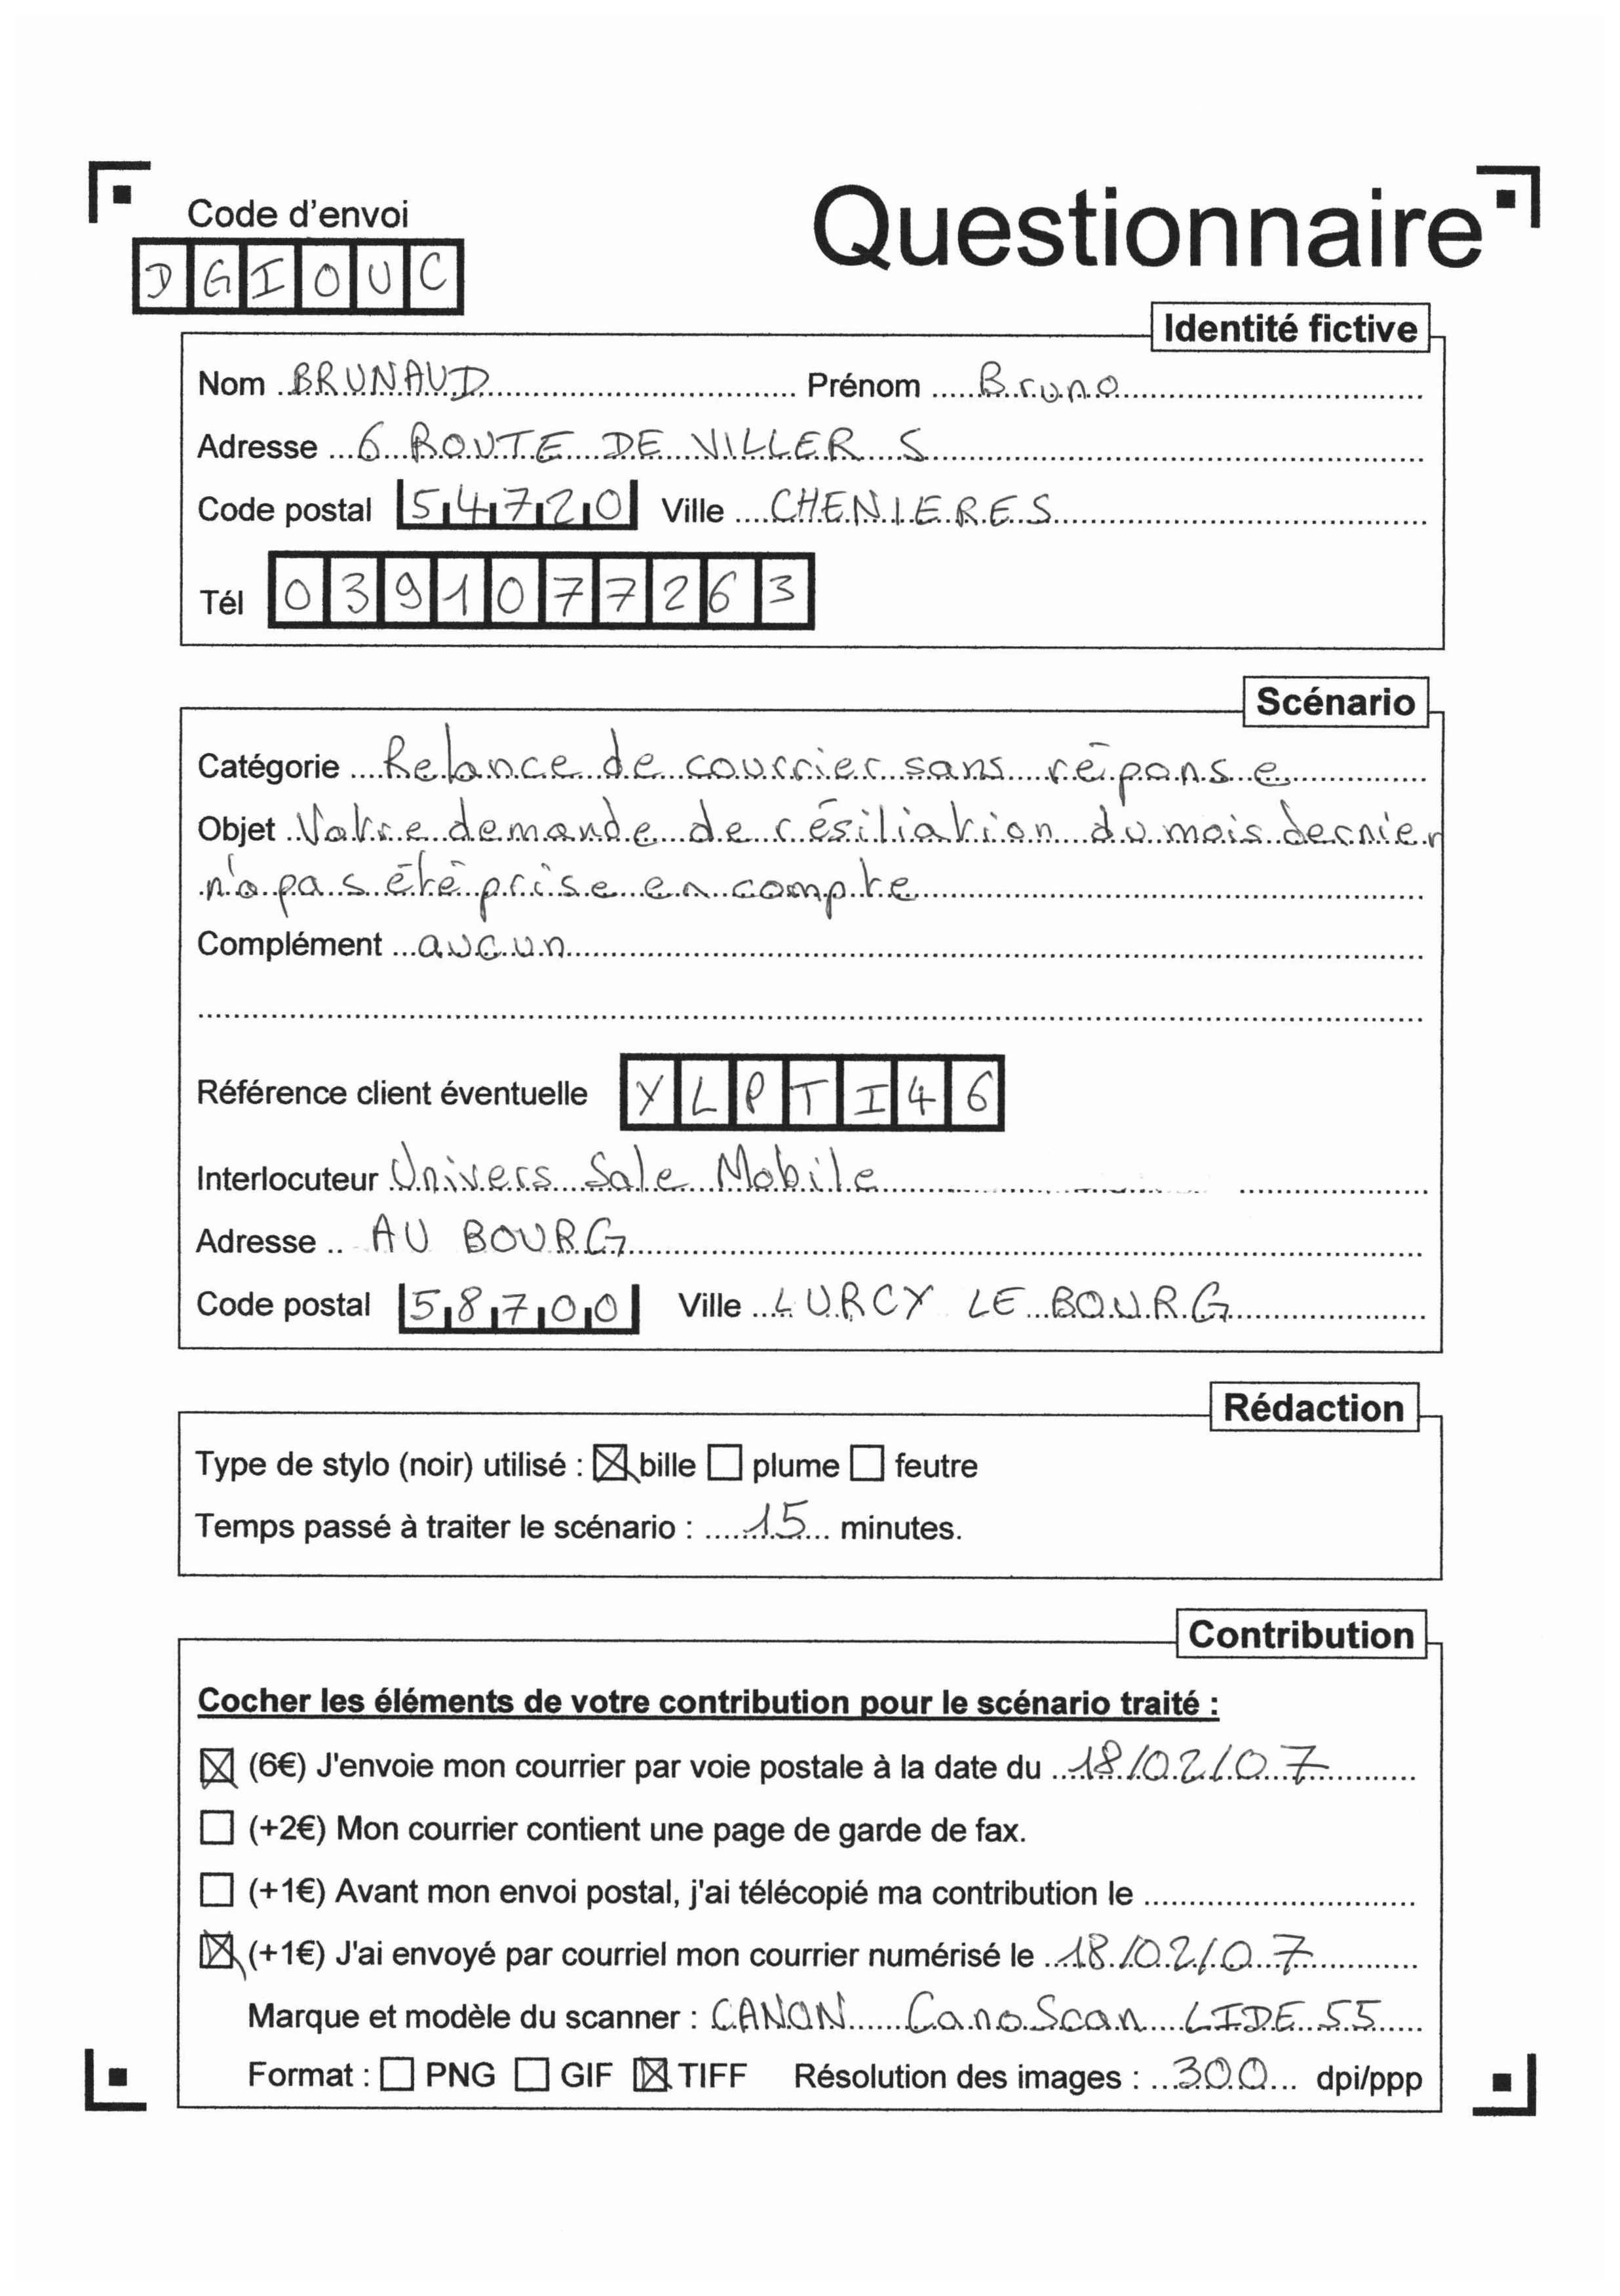 Code d'envoi
Questionnaire
DGIOUC
Identité fictive
Nom BRUNAUD Prénom Bruno
Adresse 6 ROUTE DE VILLERS
Code postal 54720 Ville CHENIERES
Tél 0391077263
Scénario
Catégorie Relance de courrier sans réponse
Objet Votre demande de résiliation du mois dernier
n'a pas été prise en compte
Complément aucun
Référence client éventuelle YLPTI46
Interlocuteur Univers Sale Mobile
Adresse AU BOURG
Code postal 58700 Ville LURCY LE BOURG
Rédaction
Type de stylo (noir) utilisé : ☒ bille ☐ plume ☐ feutre
Temps passé à traiter le scénario : 15 minutes.
Contribution
Cocher les éléments de votre contribution pour le scénario traité :
☒ (6€) J'envoie mon courrier par voie postale à la date du 18/02/07
☐ (+2€) Mon courrier contient une page de garde de fax.
☐ (+1€) Avant mon envoi postal, j'ai télécopié ma contribution le
☒ (+1€) J'ai envoyé par courriel mon courrier numérisé le 18/02/07
Marque et modèle du scanner : CANON CanoScan LIDE 55
Format : ☐ PNG ☐ GIF ☒ TIFF Résolution des images : 300 dpi/ppp